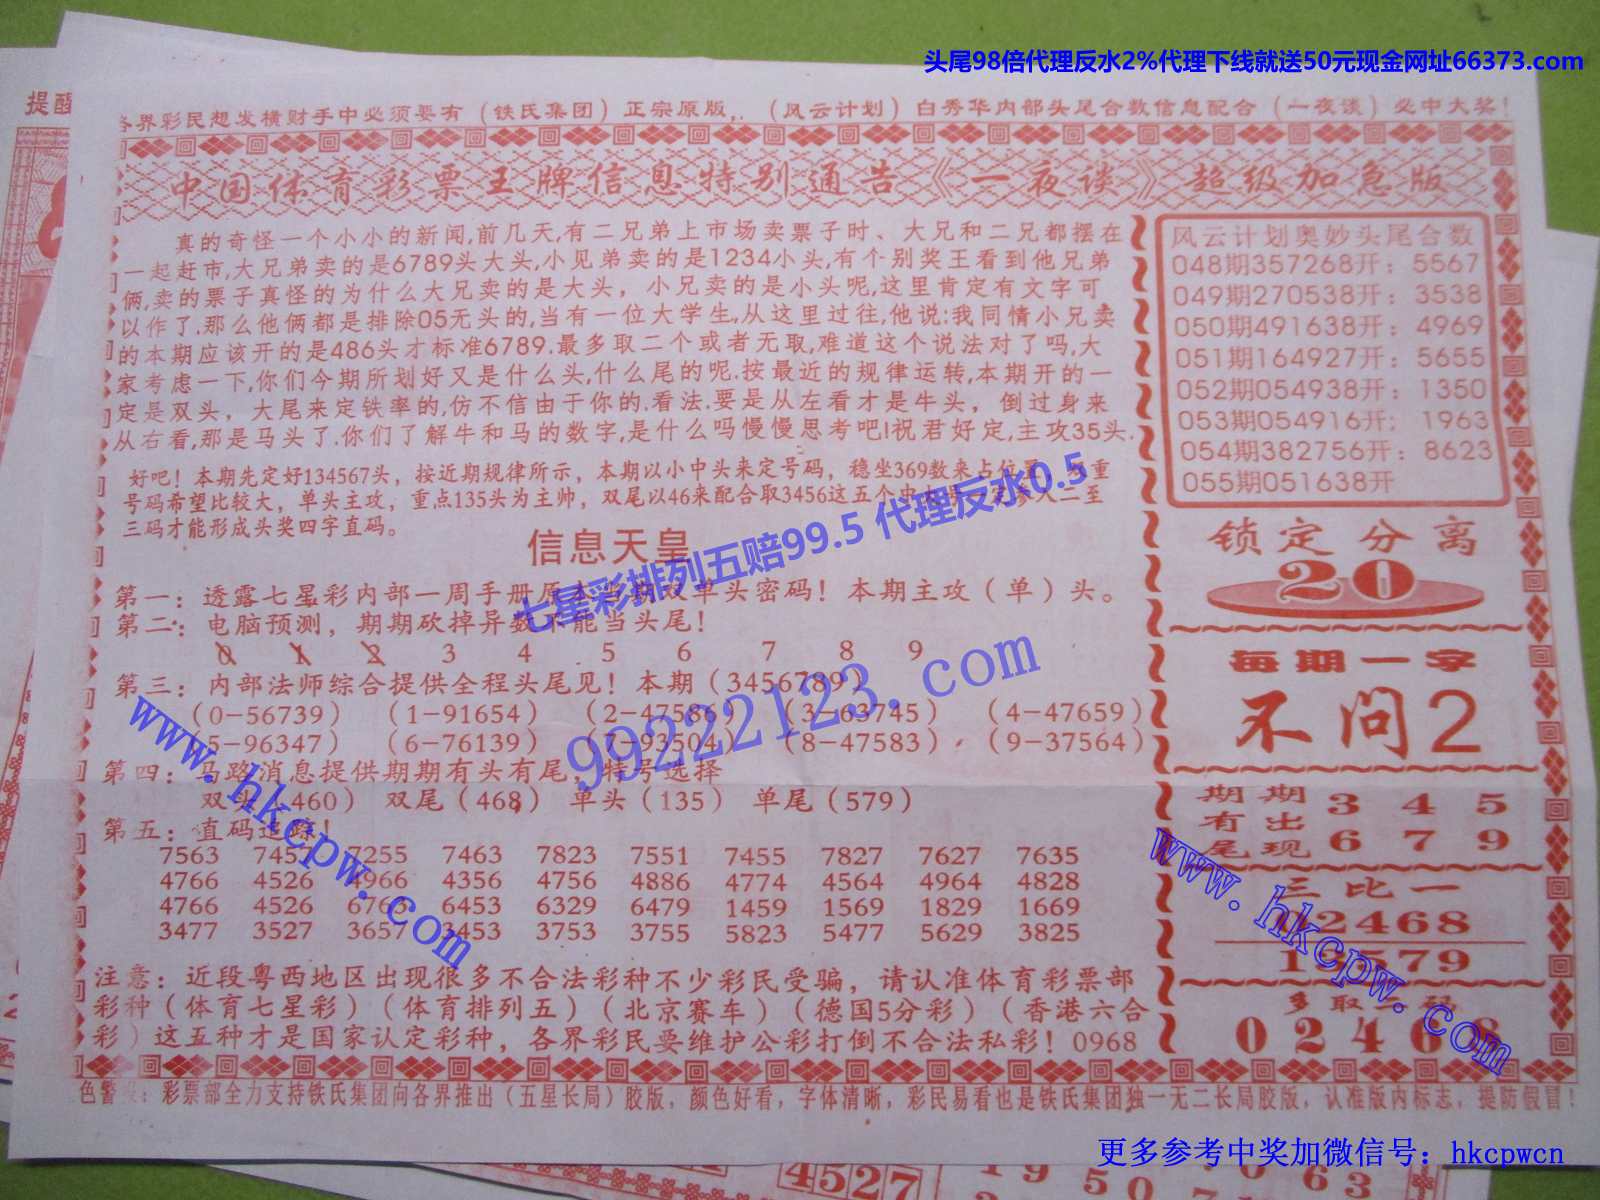 头尾98倍代理反水2%代理下线就送50元现金网址66373.com
提醒
各界彩民想发横财手中必须要有（铁氏集团）正宗原版,.（风云计划）白秀华内部头尾合数信息配合（一夜谈）必中大奖！
中国体育彩票王牌信息特别通告《一夜谈》超级加急版
真的奇怪一个小小的新闻,前几天,有二兄弟上市场卖票子时、大兄和二兄都摆在
一起赶市,大兄弟卖的是6789头大头,小见弟卖的是1234小头,有个别奖王看到他兄弟
俩,卖的票子真怪的为什么大兄卖的是大头，小兄卖的是小头呢,这里肯定有文字可
以作了.那么他俩都是排除05无头的,当有一位大学生,从这里过往,他说:我同情小兄卖
的本期应该开的是486头才标准6789.最多取二个或者无取,难道这个说法对了吗,大
家考虑一下,你们今期所划好又是什么头,什么尾的呢.按最近的规律运转,本期开的一
定是双头，大尾来定铁率的,仿不信由于你的.看法.要是从左看才是牛头，倒过身来
从右看,那是马头了.你们了解牛和马的数字,是什么吗慢慢思考吧!祝君好定,主攻35头.
好吧！本期先定好134567头，按近期规律所示，本期以小中头来定号码，稳坐369数来占位置
重
号码希望比较大，单头主攻，重点135头为主帅，双尾以46来配合取3456这五个
二至
三码才能形成头奖四字直码。
信息天皇
七星彩排列五赔99.5 代理反水0.5
第一：透露七星彩内部一周手册原本当期双单头密码！本期主攻（单）头。
第二：电脑预测，期期砍掉异数不能当头尾！
0 1 2 3 4 5 6 7 8 9
第三：内部法师综合提供全程头尾见！本期（3456789）
（0-56739）（1-91654）（2-47586）（3-63745）（4-47659）
（5-96347）（6-76139）（7-93504）（8-47583）（9-37564）
99222123.com
第四：马路消息提供期期有头有尾，特号选择
双头（460）双尾（468）单头（135）单尾（579）
第五：直码追踪！
7563 745 7255 7463 7823 7551 7455 7827 7627 7635
4766 4526 4966 4356 4756 4886 4774 4564 4964 4828
4766 4526 6765 6453 6329 6479 1459 1569 1829 1669
3477 3527 3657 3453 3753 3755 5823 5477 5629 3825
www.hkcpw.com
注意：近段粤西地区出现很多不合法彩种不少彩民受骗，请认准体育彩票部
彩种（体育七星彩）（体育排列五）（北京赛车）（德国5分彩）（香港六合
彩）这五种才是国家认定彩种，各界彩民要维护公彩打倒不合法私彩！0968
风云计划奥妙头尾合数
048期357268开：5567
049期270538开：3538
050期491638开：4969
051期164927开：5655
052期054938开：1350
053期054916开；1963
054期382756开：8623
055期051638开
锁定分离
20
每期一字
不问2
期期 3 4 5
有出
尾现 6 7 9
三比一
02468
13579
多取二码
02468
www.hkcpw.com
色警
：彩票部全力支持铁氏集团向各界推出（五星长局）胶版，颜色好看，字体清晰，彩民易看也是铁氏集团独一无二长局胶版，认准版内标志，提防假冒！
更多参考中奖加微信号：hkcpwcn
4527